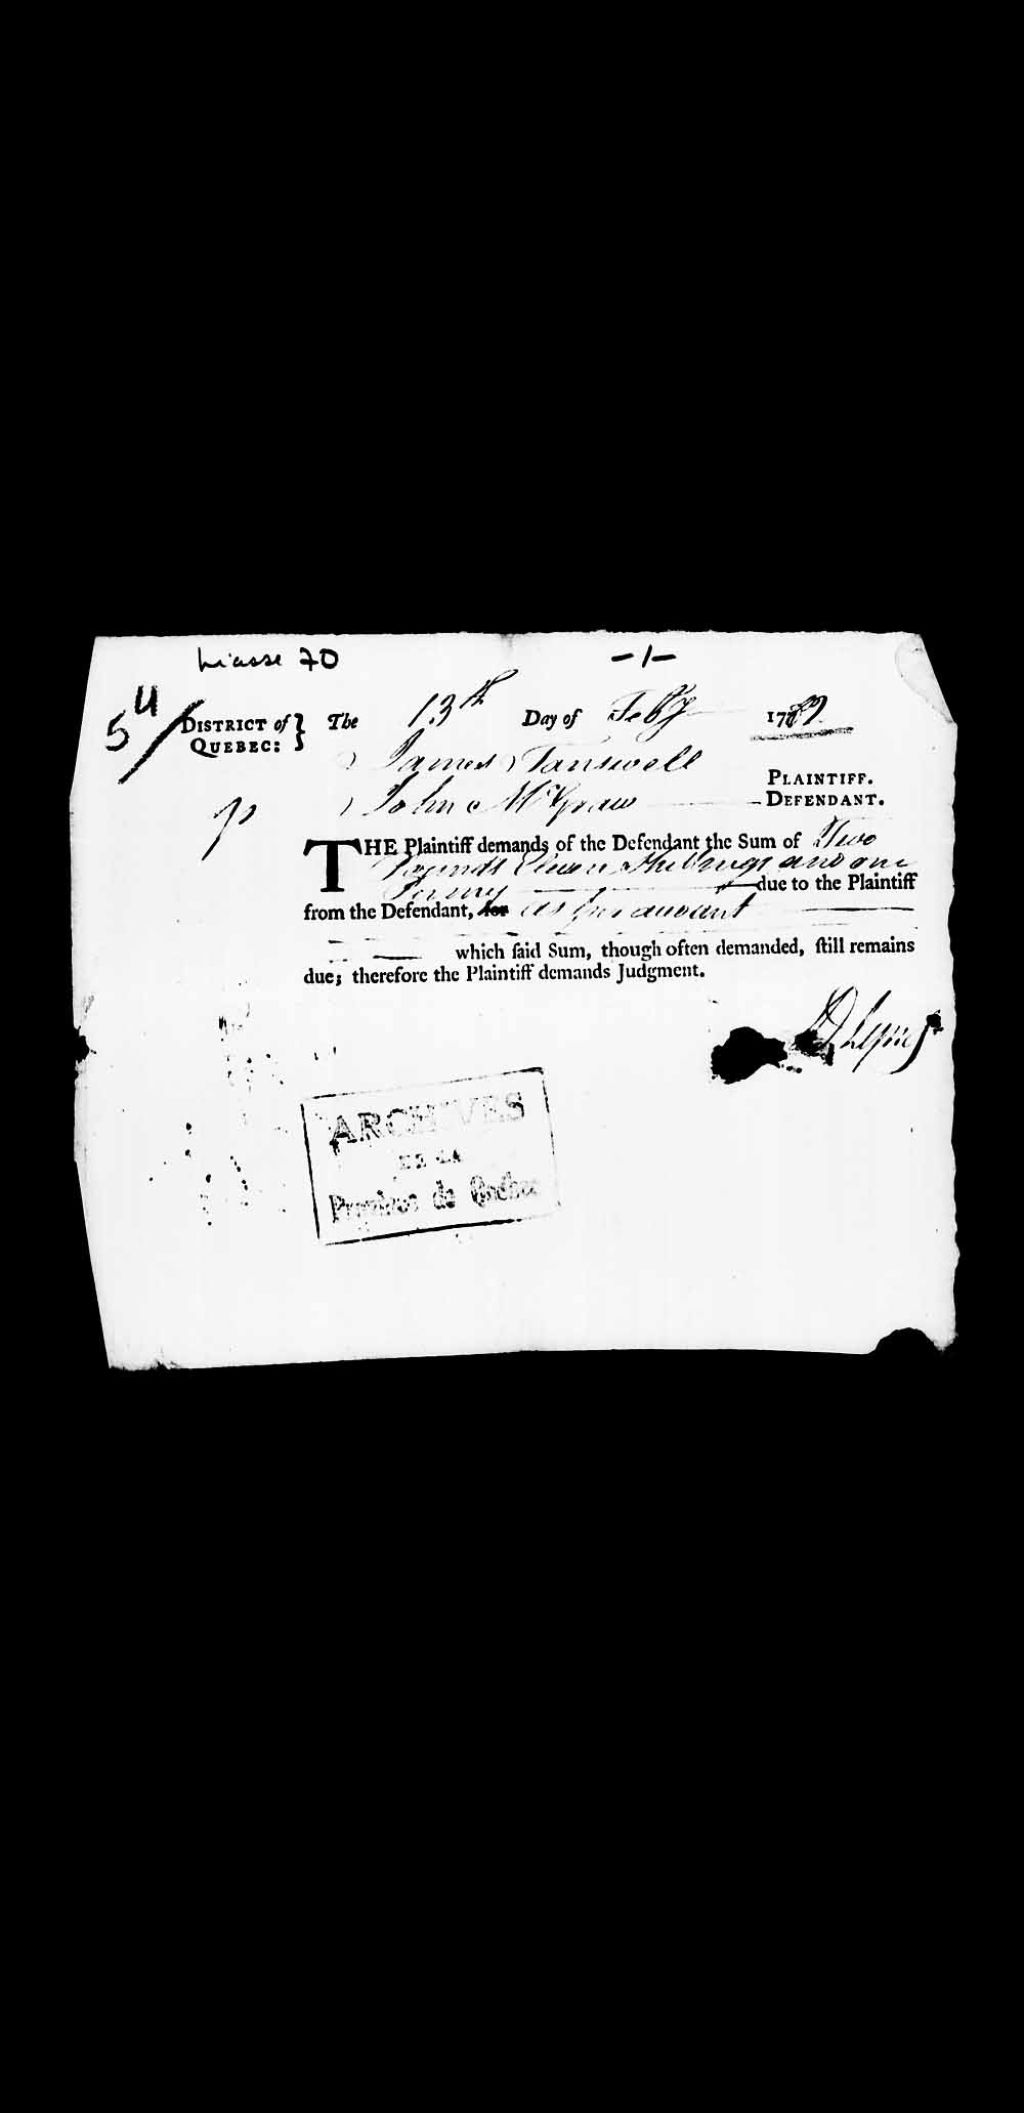 Liasse 70
-1-
54/
DISTRICT of QUEBEC: } The 13th Day of Feby 1789
James Tanswell PLAINTIFF.
John McGraw DEFENDANT.
THE Plaintiff demands of the Defendant the Sum of Two
Pounds Eleven Shillings and one
Penny due to the Plaintiff
from the Defendant, for as per account
which ſaid Sum, though often demanded, ſtill remains
due; therefore the Plaintiff demands Judgment.
D Lynd
ARCHIVES
DE LA
Province de Québec